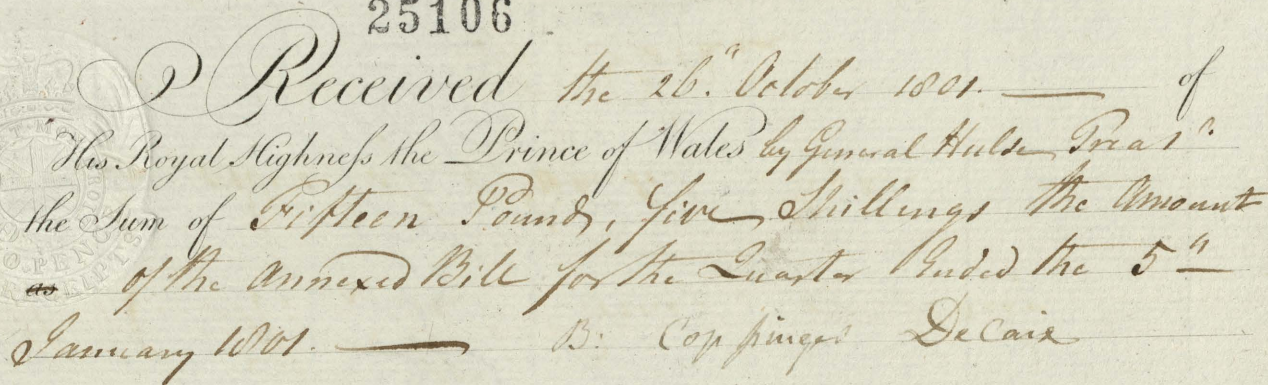 25106
Received the 26" October 1801. — of
His Royal Highneſs the Prince of Wales by General Hulse Treasr
the Sum of Fifteen Pounds, five Shillings the Amount
as of the Annexed Bill for the Quarter Ended the 5"
January 1801. — B: DeCaix